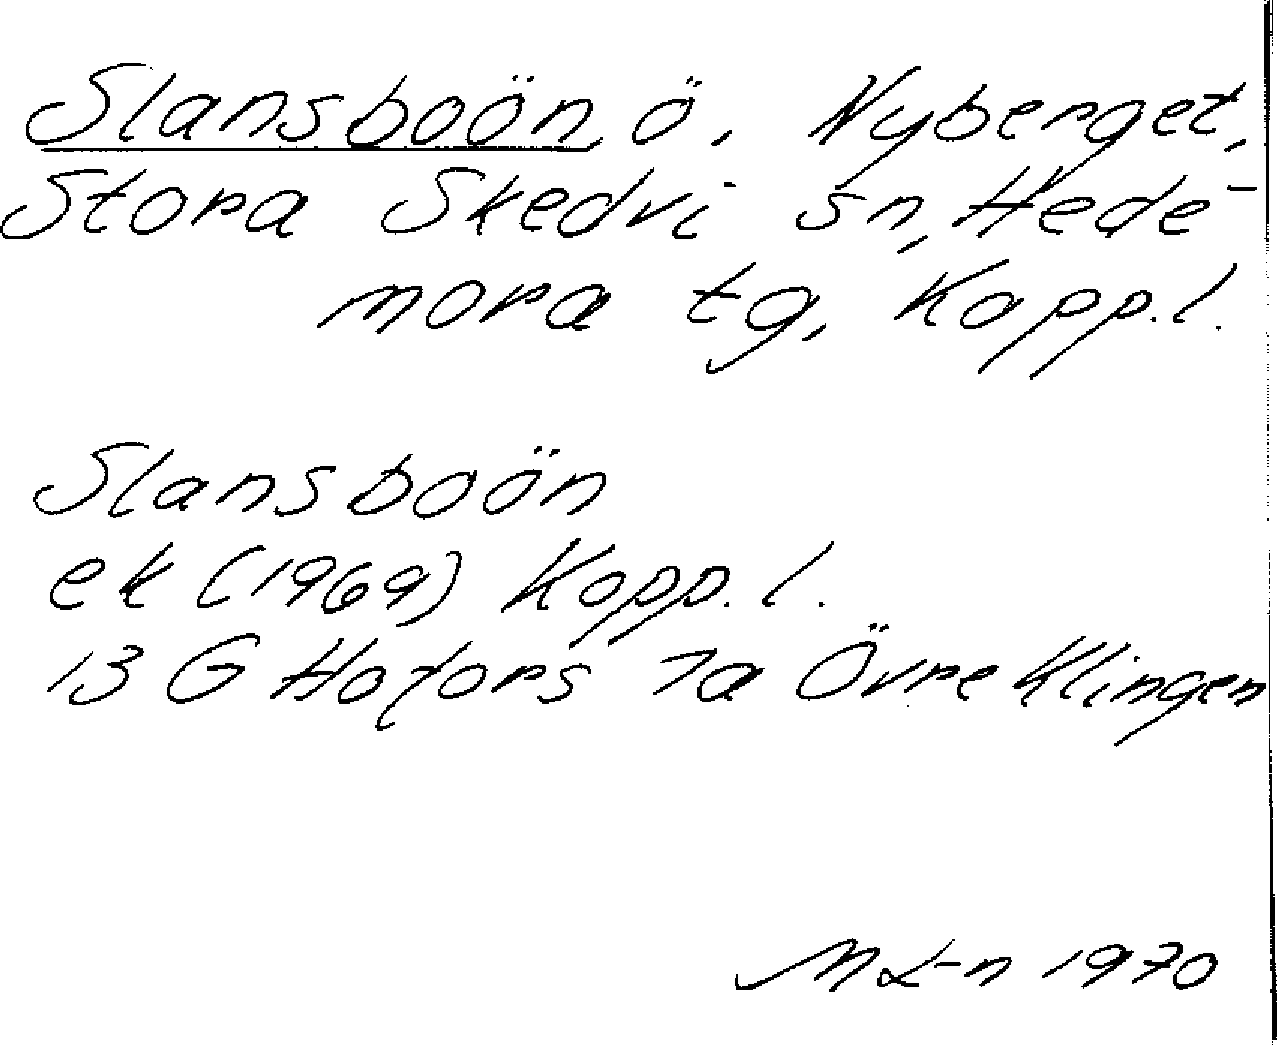 Slansboön, ö, Nyberget,
Stora Skedvi sn, Hede-
mora tg, Kopp.l.
Slansboön
ek (1969) Kopp. l.
13 G Hofors 7a Övre Klingen
M L-n 1970